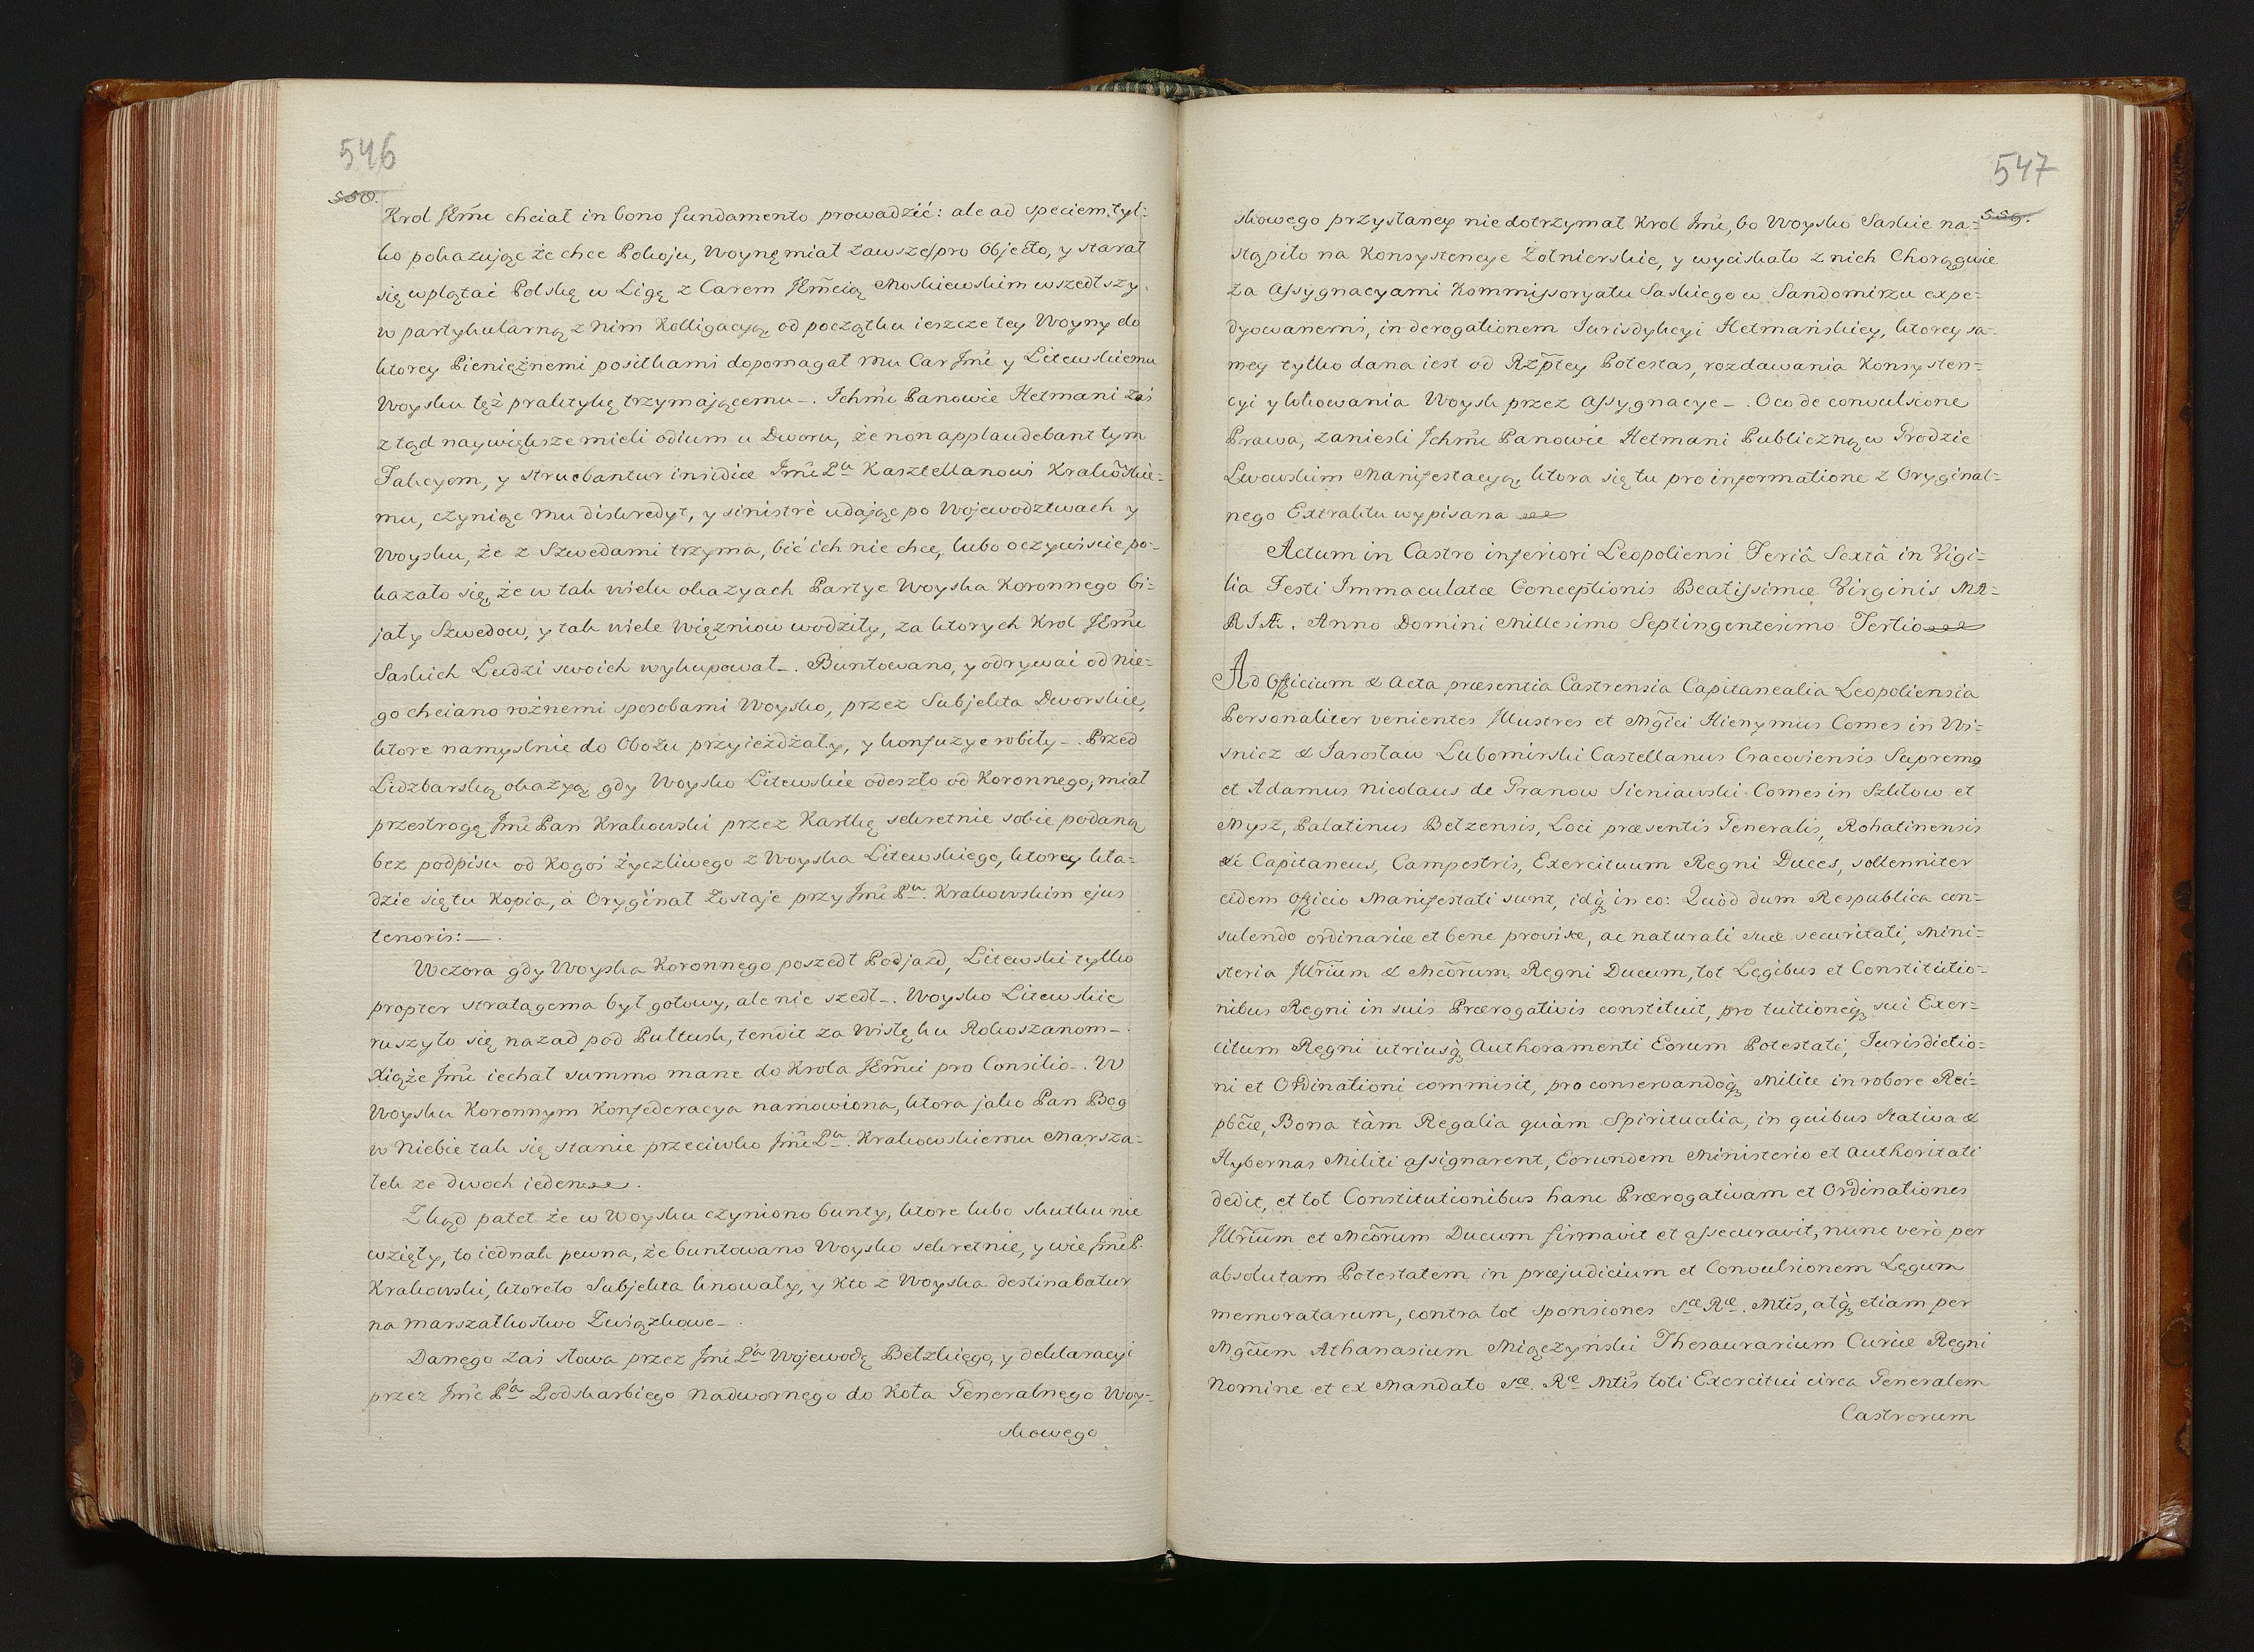 546
558.
Krol JEm̃c chciał in bono fundamento prowadzić: ale ad speciem tyl=
ko pokazując że chce Pokoju, Woynę miał zawsze pro Objecto, y starał
się wplątać Polskę w Ligę z Carem JEm̃cią Moskiewskim wszedłszy
w partykularną z nim Kolligacyą od początku ieszcze tey Woyny do
ktorey Pieniężnemi posiłkami dopomagał mu Car Jm̃c y Litewskiemu
Woysku też praktykę trzymającemu _. Ichm̃c Panowie Hetmani zaś
z tąd naywiększe mieli odium u Dworu, że non applaudebant tym
Fakcyom, y struebantur insidiæ Jm̃c Pu Kasztellanowi Krakõskie=
mu, czyniąc mu diskredyt, y sinistrè udając po Wojewodztwach y
Woysku, że z Szwedami trzyma, bić ich nie chce, lubo oczywiście po=
kazało się, że w tak wielu okazyach Partye Woyska Koronnego bi=
jały Szwedow, y tak wiele więzniow wodziły, za ktorych Krol JEm̃c
Saskich Ludzi swoich wykupował _. Buntowano, y odrywać od nie=
go chciano rożnemi sposobami Woysko, przez Subjekta Dworskie,
ktore namyslnie do Obozu przyieżdżały, y konfuzye robiły _. Przed
Lidzbarską okazyą gdy Woysko Litewskie odeszło od Koronnego, miał
przestrogę Jm̃c Pan Krakowski przez Kartkę sekretnie sobie podaną
bez podpisu od Kogoś życzliwego z Woyska Litewskiego, ktorey kła=
dzie się tu Kopia, à Orygìnał zostaje przy Jm̃c Pu. Krakowskim ejus
tenoris: _.
Wczora gdy Woyska Koronnego poszedł Podjazd, Litewski tylko
propter stratagema był gotowy, ale nie szedł _. Woysko Litewskie
ruszyło się nazad pod Pułtusk, tendit za Wisłę ku Rokoszanom _.
Xiąże Jm̃c iechał summo mane do Krola JEm̃ci pro Consilio _. W
Woysku Koronnym Konfederacya namowiona, ktora jako Pan Bog
w Niebie tak się stanie przeciwko Jm̃c Pu. Krakowskiemu Marsza=
łek ze dwoch ieden.
Zkąd patet że w Woysku czyniono bunty, ktore lubo skutku nie
wzięły, to iednak pewna, że buntowano Woysko sekretnie, y wie Jm̃c P.
Krakowski, ktoreto Subjekta knowały, y Kto z Woyska destinabatur
na marszałkostwo Związkowe _.
Danego zaś słowa przez Jm̃c Pa Wojewodę Bełzkięgo, y deklaracyi
przez Jm̃c Pa Podskarbiego Nadwornego do Koła Generalnego Woy=
skowego
547
559.
skowego przystaney nie dotrzymał Krol Jm̃c, bo Woysko Saskie na=
stąpiło na Konsystencye Zołnierskie, y wyciskało z nich Chorągwie
za Assygnacyami Kommissoryatu Saskiego w Sandomirzu expe=
dyowanemi, in derogationem Jurisdykcyi Hetmańskiey, ktorey sa=
mey tylko dana iest od Rzp̃tey Potestas, rozdawania Konsysten=
cyi y lokowania Woysk przez Assygnacye _. O co de convulsione
Prawa, zaniesli Ichm̃c Panowie Hetmani Publiczną w Grodzie
Lwowskim Manifestacyą, ktora się tu pro informatione z Oryginal=
nego Extraktu wypisana
Actum in Castro inferiori Leopoliensi Feriâ Sextâ in Vigi=
lia Festi Immaculatæ Conceptionis Beatissimæ Virginis MA=
RIÆ. Anno Domini Millesimo Septingentesimo Tertio
Ad Officium & Acta præsentia Castrensia Capitanealia Leopoliensia
Personaliter venientes Illustres et Mg̃ici Hienymus Comes in Wi=
snicz & Jarosław Lubomirski Castellanus Cracoviensis Supremg
et Adamus Nicolaus de Granow Sieniawski Comes in Szkłow et
Mysz, Palatinus Belzensis, Loci præsentis Generalis, Rohatinensis
&c Capitaneus, Campestris, Exercituum Regni Duces, sollenniter
eidem Officio Manifestati sunt, idq̃ in eo: Quòd dum Respublica con=
sulendo ordinariæ et bene provisæ, ac naturali suæ securitati, Mini=
steria Illr̃ium & Mcõrum Regni Ducum, tot Legibus et Constitutio=
nibus Regni in suis Prærogativis constituit, pro tuitioneq̃ sui Exer=
citum Regni utriusq̃ Authoramenti Eorum Potestati, Jurisdictio=
ni et Ordinationi commisit, pro conservandoq̃ Milite in robore Rei=
pb̃cæ, Bona tàm Regalia quàm Spiritualia, in quibus Stativa &
Hybernas Militi assignarent, Eorundem Ministerio et Authoritati
dedit, et tot Constitutionibus hanc Prærogativam et Ordinationes
Illr̃ium et Mcõrum Ducum firmavit et assecuravit, nunc verò per
absolutam Potestatem in præjudicium et Convulsionem Legum
memoratarum, contra tot sponsiones Sæ Ræ. Mtis, atq̃ etiam per
Mgc̃um Athanasium Miączyński Thesaurarium Curiæ Regni
Nomine et ex Mandato Sæ. Ræ Mtis toti Exercitui circa Generalem
Castrorum